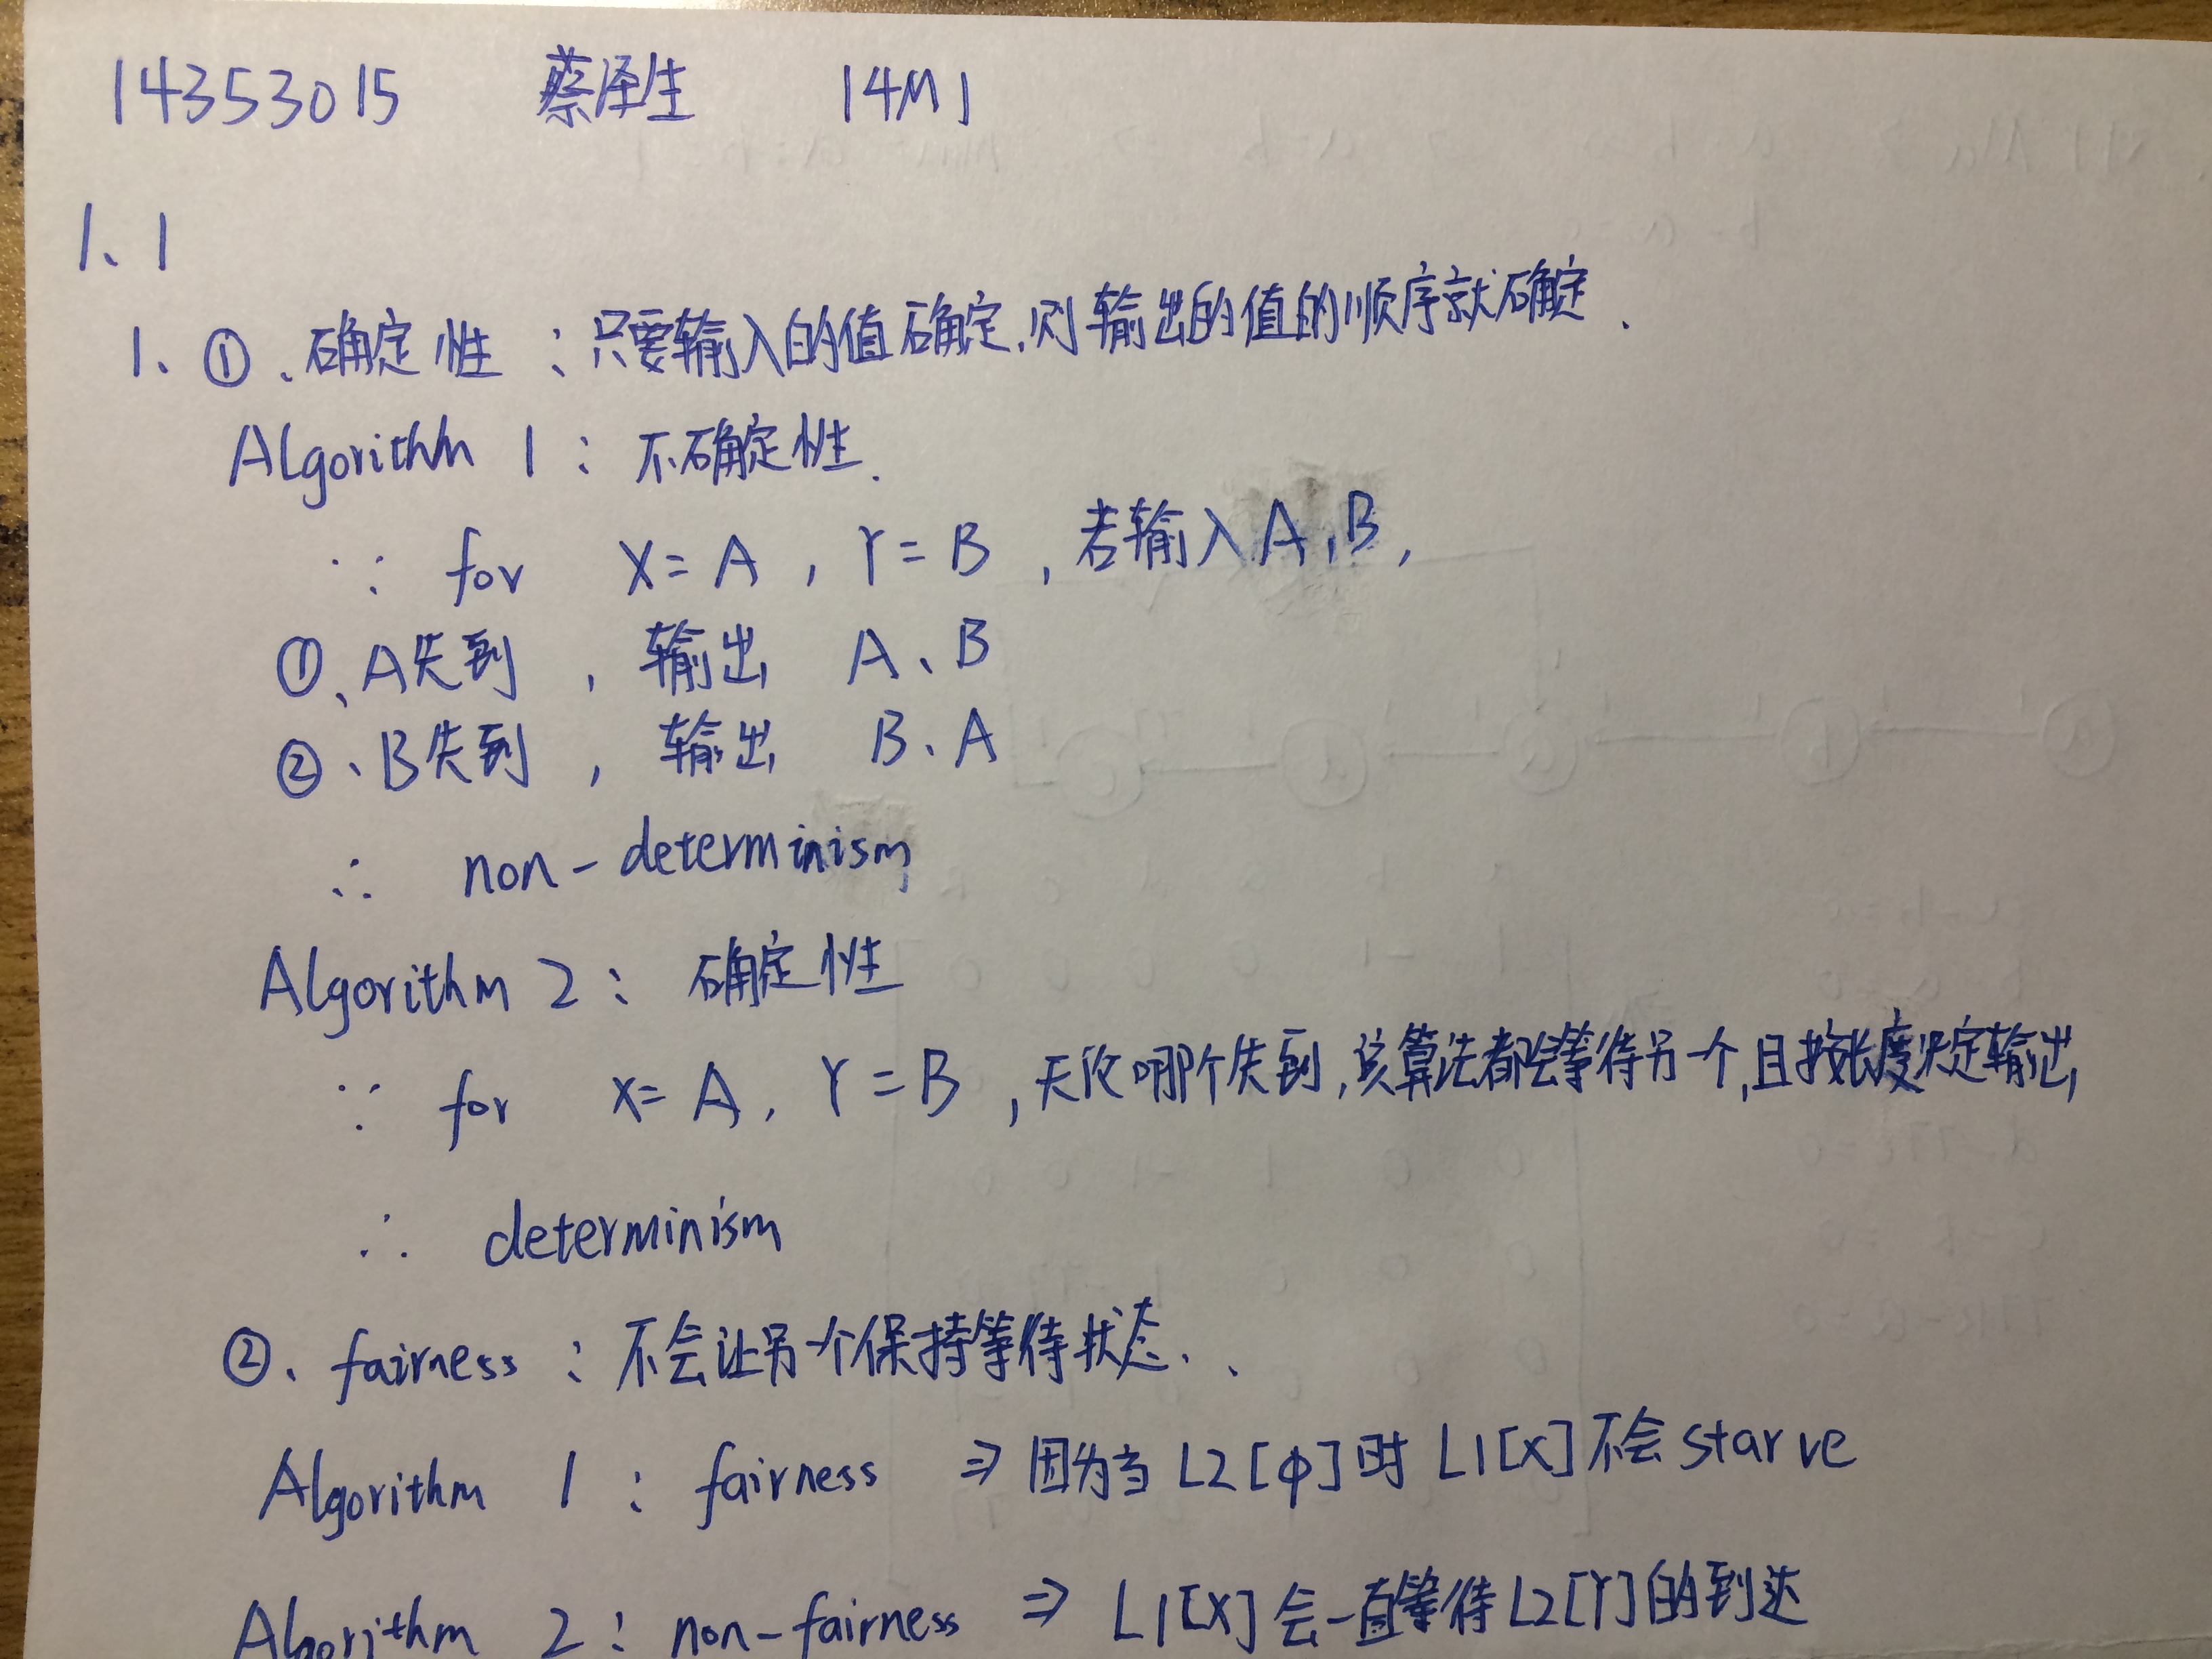 14353015 蔡泽生 14M1
1、1
1、①、确定性：只要输入的值确定,则输出的值的顺序就确定.
Algorithm 1：不确定性.
∵ for X=A , Y=B , 若输入A,B,
①、A先到 , 输出 A、B
②、B先到 , 输出 B、A
∴ non-determinism
Algorithm 2：确定性
∵ for X=A, Y=B ,无论哪个先到,该算法都会等待另一个,且按长度决定输出,
∴ determinism
②、fairness：不会让另一个保持等待状态.
Algorithm 1：fairness ⇒ 因为当L2[φ]时 L1[X]不会starve
Algorithm 2：non-fairness ⇒ L1[X]会一直等待L2[Y]的到达